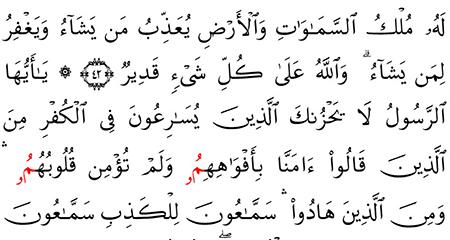 لَهُۥ مُلْكُ ٱلسَّمَٰوَٰتِ وَٱلْأَرْضِ يُعَذِّبُ مَن يَشَآءُ وَيَغْفِرُ
لِمَن يَشَآءُ ۗ وَٱللَّهُ عَلَىٰ كُلِّ شَىْءٍ قَدِيرٌ ﴿٤٢﴾ ۞ يَٰٓأَيُّهَا
ٱلرَّسُولُ لَا يَحْزُنكَ ٱلَّذِينَ يُسَٰرِعُونَ فِى ٱلْكُفْرِ مِنَ
ٱلَّذِينَ قَالُوٓا۟ ءَامَنَّا بِأَفْوَٰهِهِمُۥ وَلَمْ تُؤْمِن قُلُوبُهُمُۥ ۛ
وَمِنَ ٱلَّذِينَ هَادُوا۟ ۛ سَمَّٰعُونَ لِلْكَذِبِ سَمَّٰعُونَ